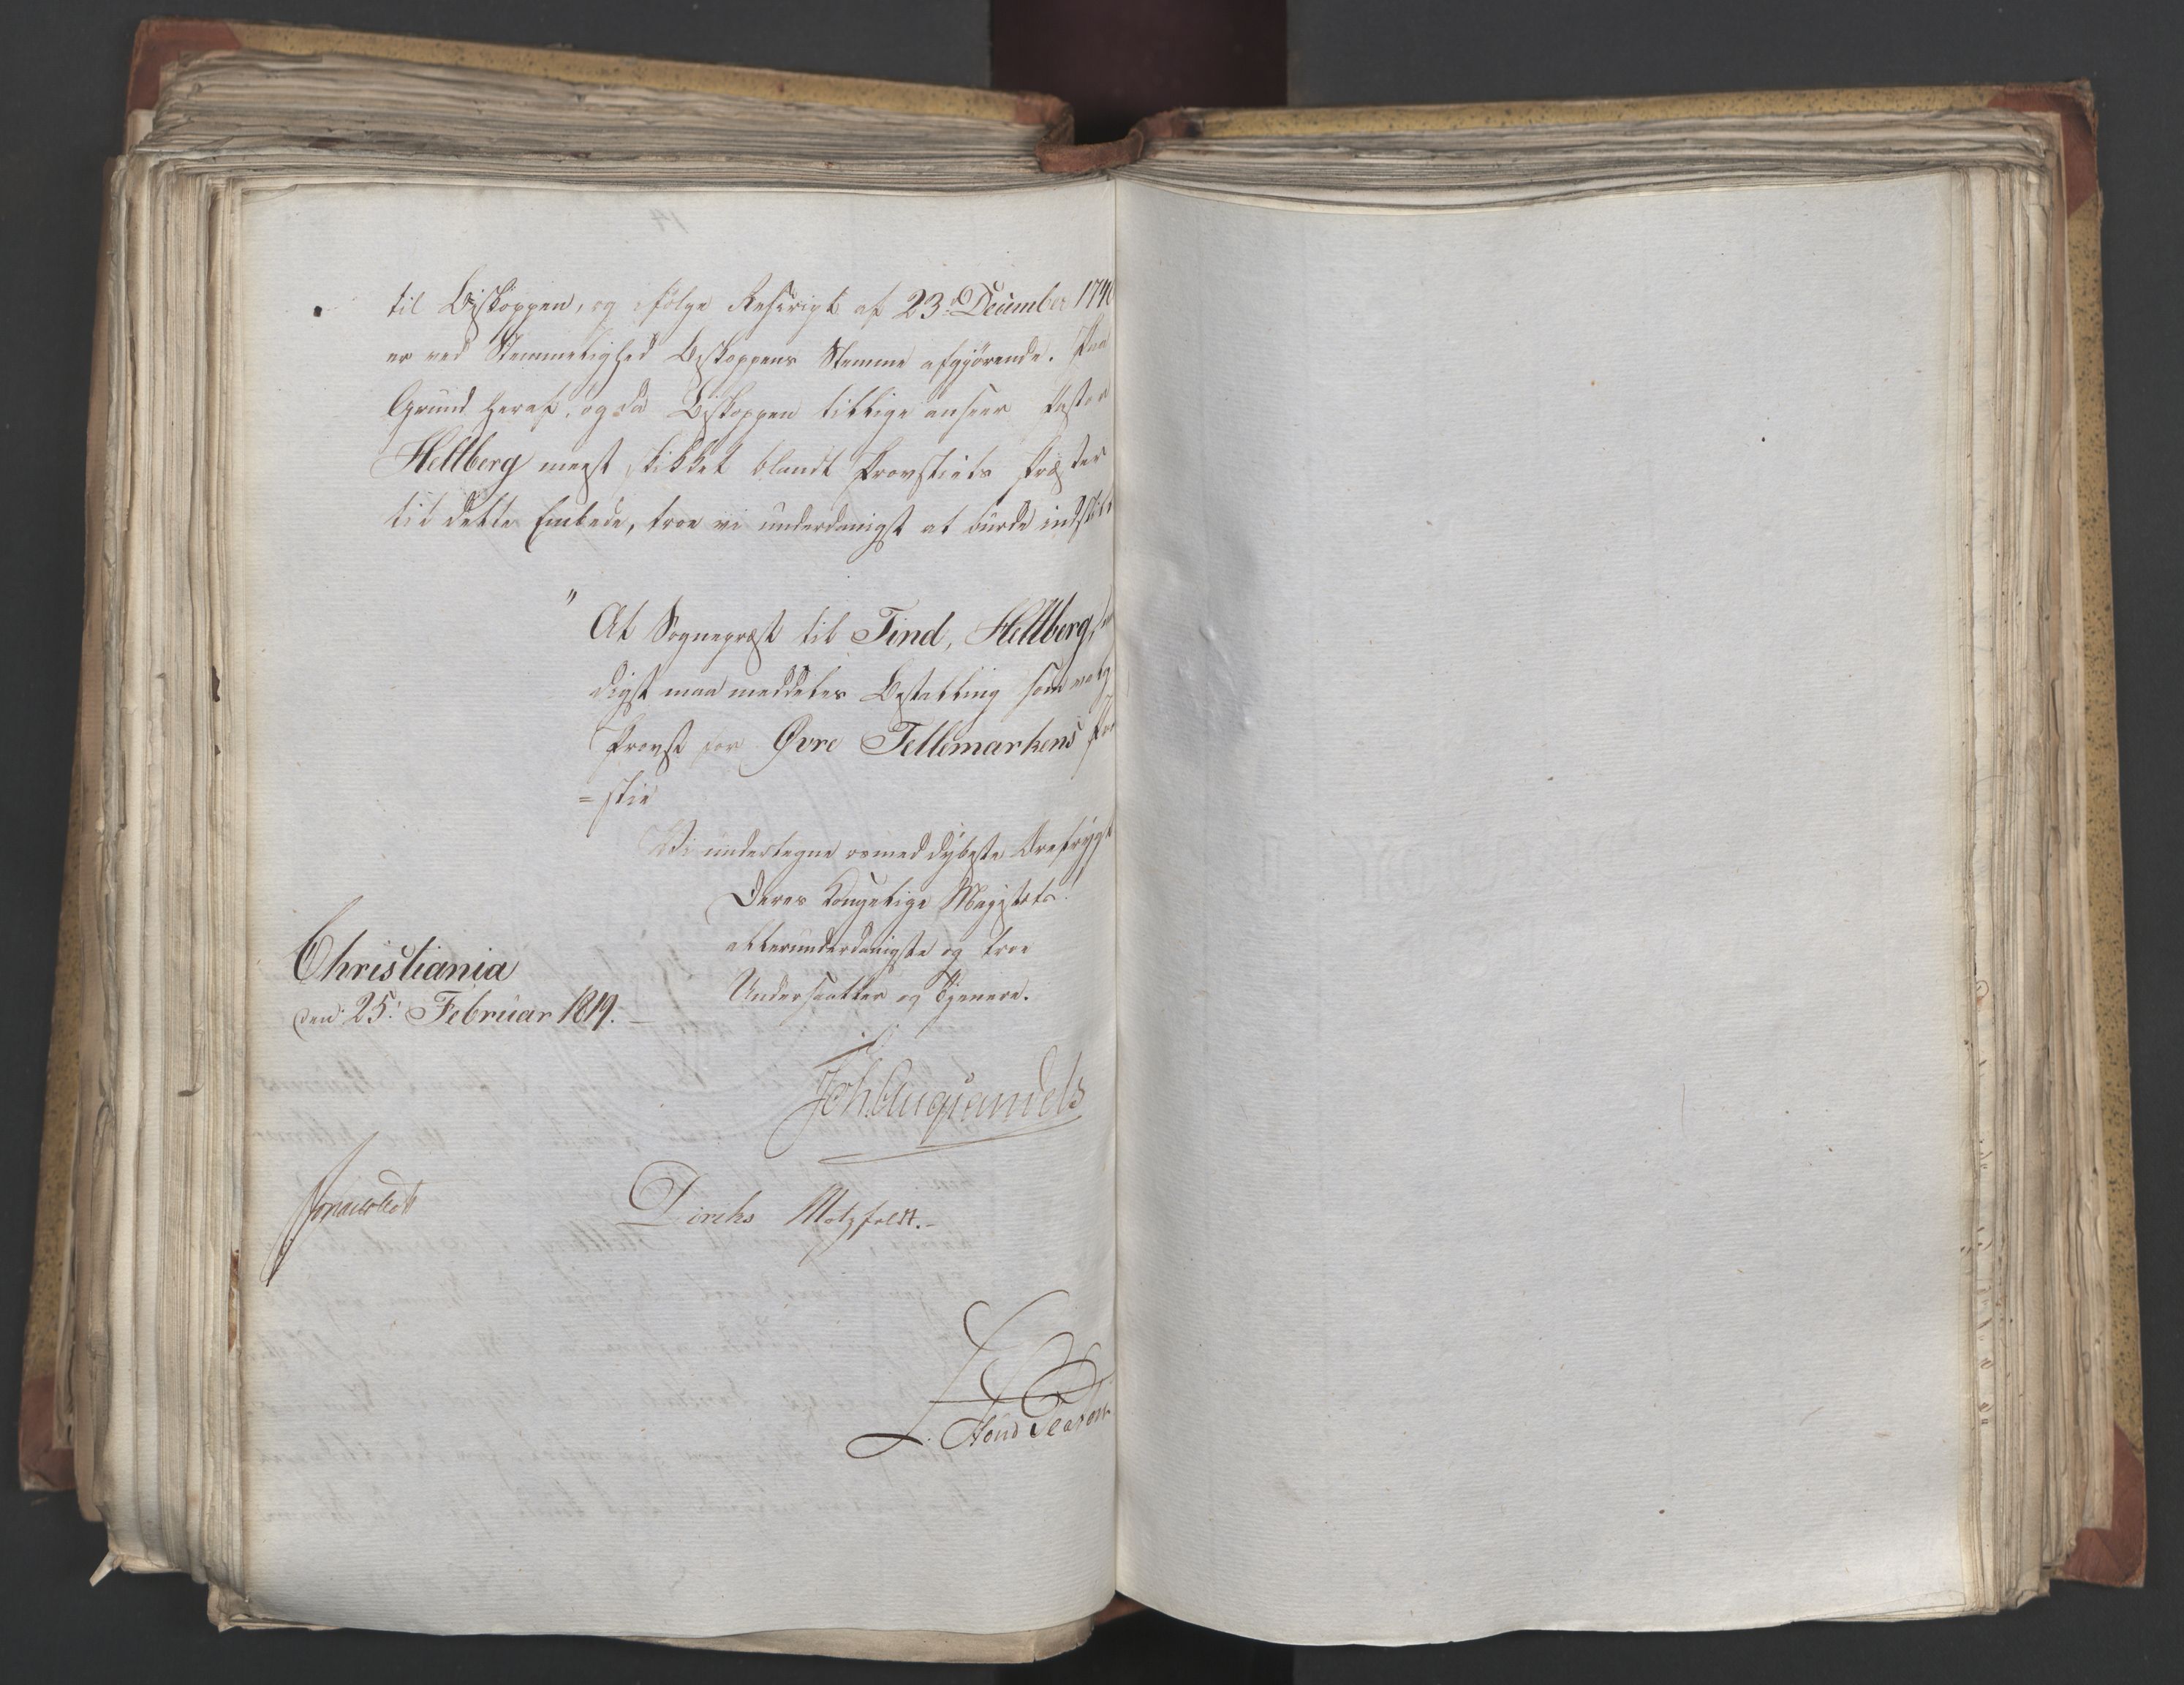 til Biskoppen, og ifølge Rescript af 23de December 174
er ved Stemmelighed Biskoppens Stemme afgjørende. Paa
Grund heraf, og da Biskoppen tillige anseer Pastor
Hellberg meest skikket blandt Provstiets Præster
til dette Embede, troe vi underdanigst at burde indstil
" At Sognepræst til Tind, Hellberg,
digst maa meddeles Bestalling som
Provst for Øvre Tellemarkens Pro
=stie
Vi undertegne os med dybeste Ærefrygt
Deres Kongelige Majestæts
allerunderdanigste og troe
Undersaatter og Tjenere.
Christiania
den 25: Februar 1819.
Joh. Aug. Sandels
Jonas Collett
Dircks Motzfeldt.